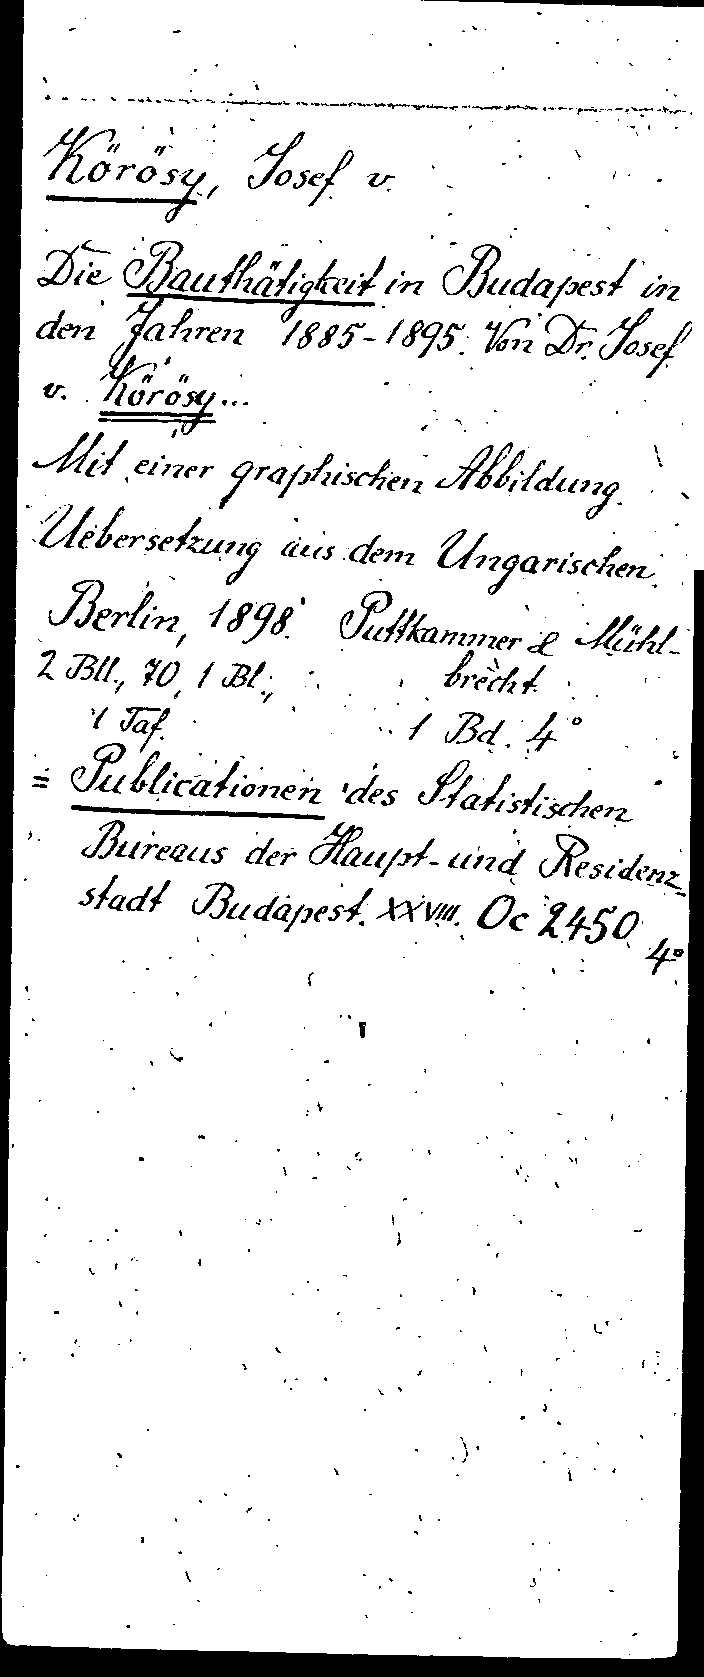 Körösy, Josef v.
Die Bauthätigkeit in Budapest in
den Jahren 1885-1895. Von Dr. Josef
v. Körösy...
Mit einer graphischen Abbildung.
Uebersetzung aus dem Ungarischen.
Berlin, 1898. Puttkammer & Mühl-
2 Bll., 70, 1 Bl., brecht.
1 Taf. 1 Bd. 4°
= Publicationen des Statistischen
Bureaus der Haupt- und Residenz-
stadt Budapest. XXVIII. Oc 2450
4°